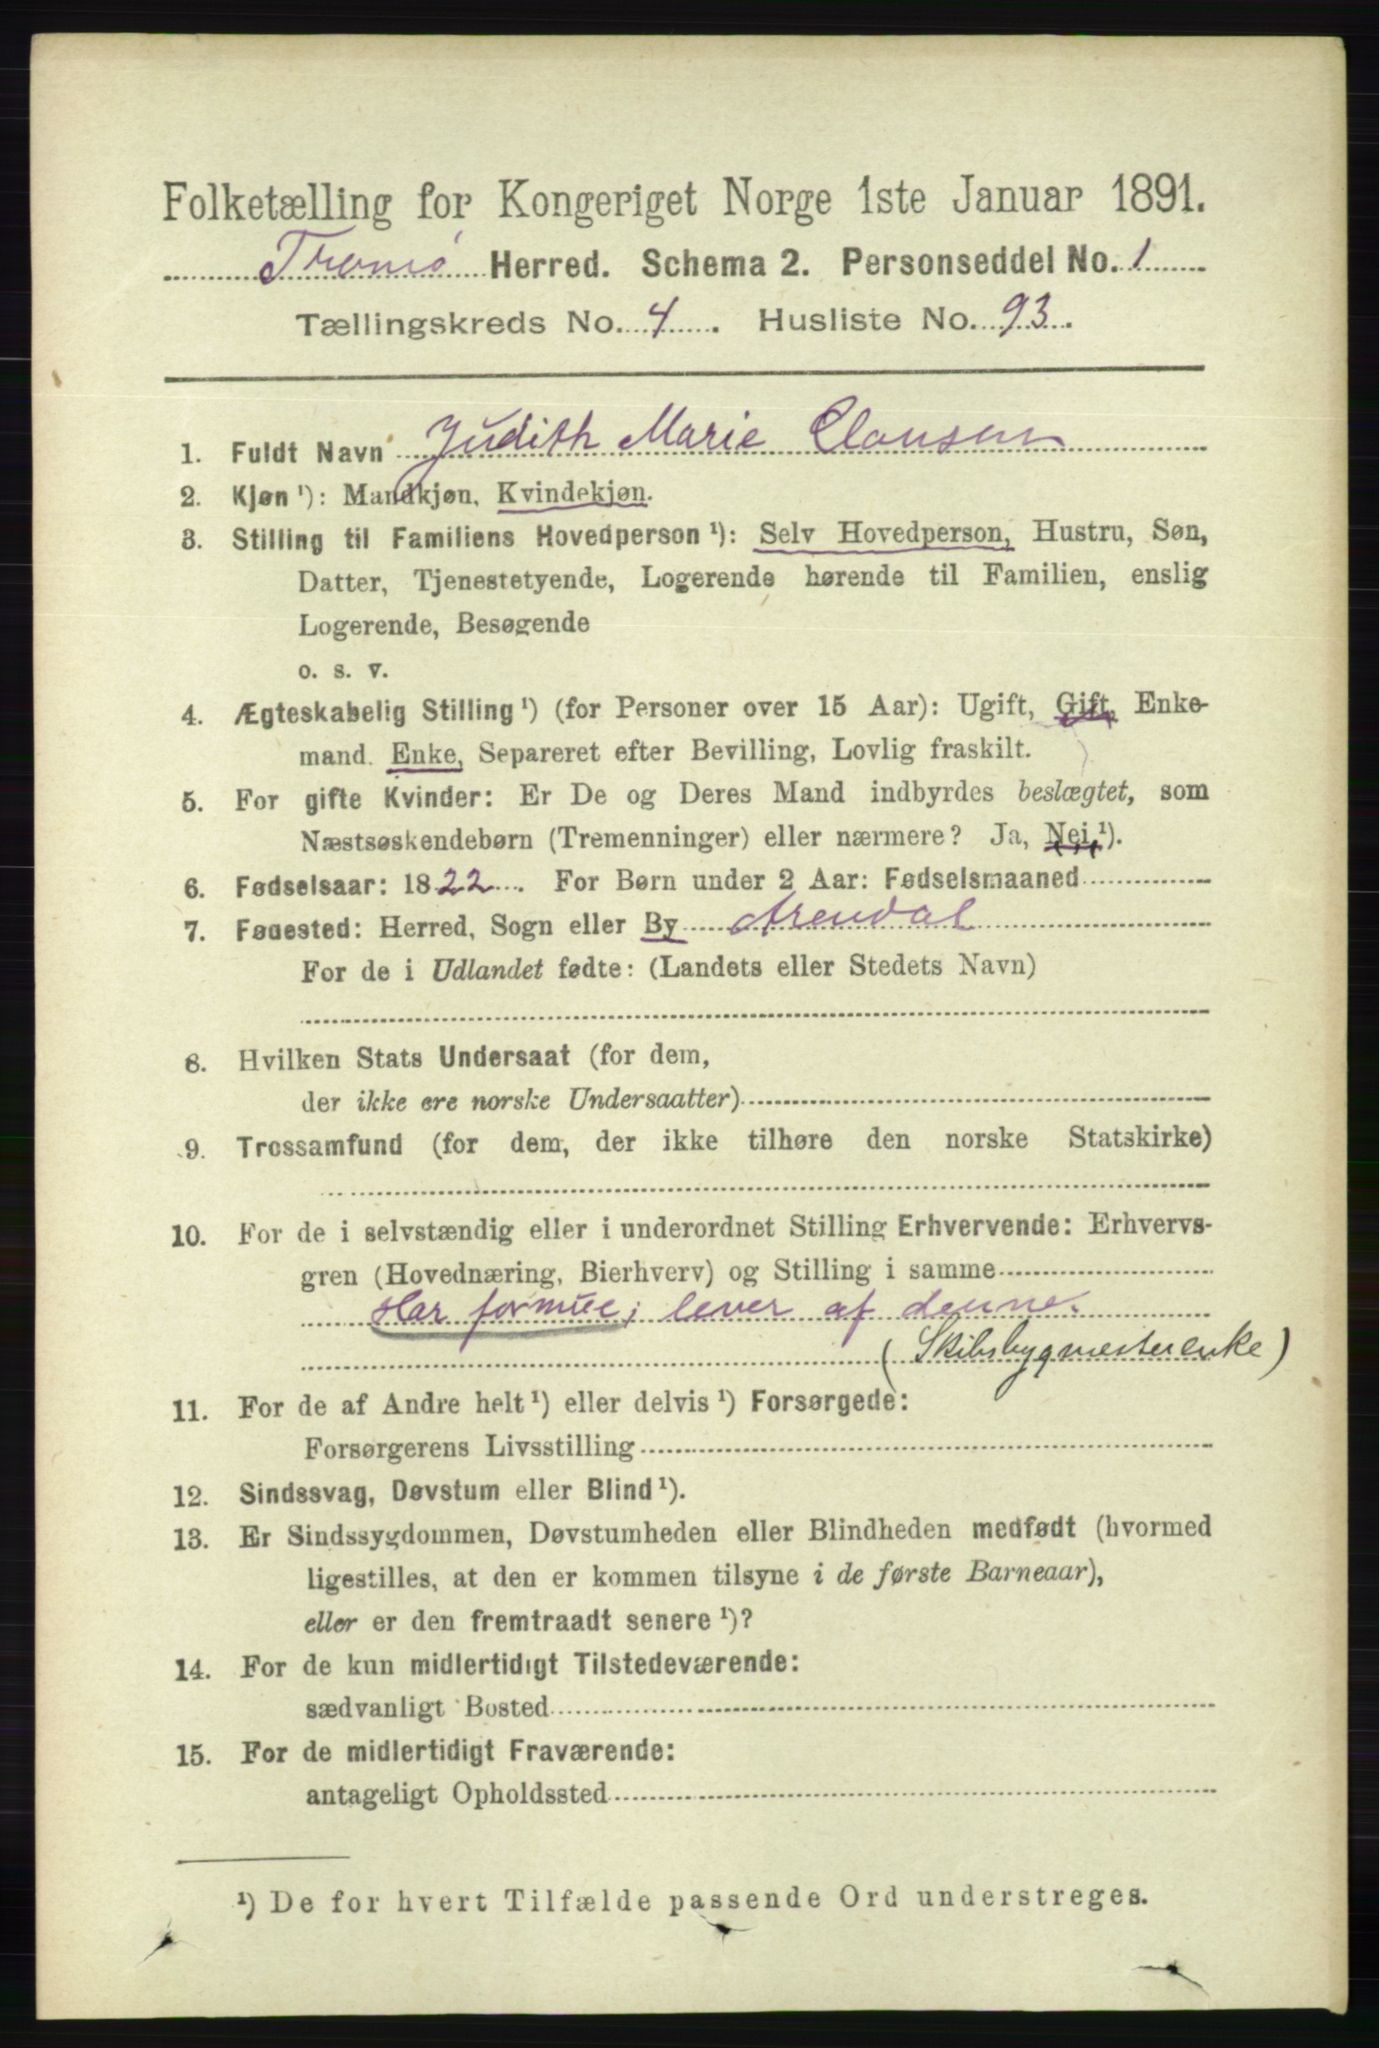 Folketælling for Kongeriget Norge 1ste Januar 1891.
Tromø Herred. Schema 2. Personseddel No. 1
Tællingskreds No. 4. Husliste No. 93.
1. Fuldt Navn Judith Marie Clausen
2. Kjøn ¹): Mandkjøn, Kvindekjøn.
3. Stilling til Familiens Hovedperson ¹): Selv Hovedperson, Hustru, Søn,
Datter, Tjenestetyende, Logerende hørende til Familien, enslig
Logerende, Besøgende
o. s. v.
4. Ægteskabelig Stilling ¹) (for Personer over 15 Aar): Ugift, Gift, Enke-
mand, Enke, Separeret efter Bevilling, Lovlig fraskilt.
5. For gifte Kvinder: Er De og Deres Mand indbyrdes beslægtet, som
Næstsøskendebørn (Tremenninger) eller nærmere? Ja, Nei, ¹).
6. Fødselsaar: 1822. For Børn under 2 Aar: Fødselsmaaned
7. Fødested: Herred, Sogn eller By Arendal
For de i Udlandet fødte: (Landets eller Stedets Navn)
8. Hvilken Stats Undersaat (for dem,
der ikke ere norske Undersaatter)
9. Trossamfund (for dem, der ikke tilhøre den norske Statskirke)
10. For de i selvstændig eller i underordnet Stilling Erhvervende: Erhvervs-
gren (Hovednæring, Bierhverv) og Stilling i samme
Har formue; lever af denne.
(Skibsbygmesterenke)
11. For de af Andre helt ¹) eller delvis ¹) Forsørgede:
Forsørgerens Livsstilling
12. Sindssvag, Døvstum eller Blind ¹).
13. Er Sindssygdommen, Døvstumheden eller Blindheden medfødt (hvormed
ligestilles, at den er kommen tilsyne i de første Barneaar),
eller er den fremtraadt senere ¹)?
14. For de kun midlertidigt Tilstedeværende:
sædvanligt Bosted
15. For de midlertidigt Fraværende:
antageligt Opholdssted
¹) De for hvert Tilfælde passende Ord understreges.